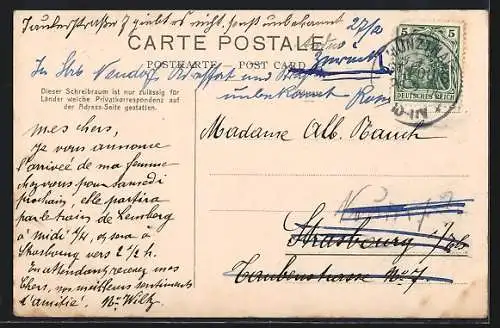 Taubenstraße 7 giebt es nicht, sonst unbekannt
27/2
CARTE POSTALE
Zurück
POSTKARTE - POST CARD
In Strb Neudorf Straße und
unbekannt
Dieser Schreibraum ist nur zulässig für
Länder welche Privatkorrespondenz auf
der Adress-Seite gestatten.
5 5
DEUTSCHES REICH
Mes chers,
Je vous annonce
l'arrivée de ma femme
chez vous pour samedi
prochain, elle partira
par le train de Lemberg
à midi 1/4, et sera à
Strasbourg vers 2 1/2 h.
En attendant, recevez mes
chers, nos meilleurs sentiments
d'amitié. Wiltz
Madame Alb. Rauch
Strasbourg i/Els
Taubenstrasse No 7.